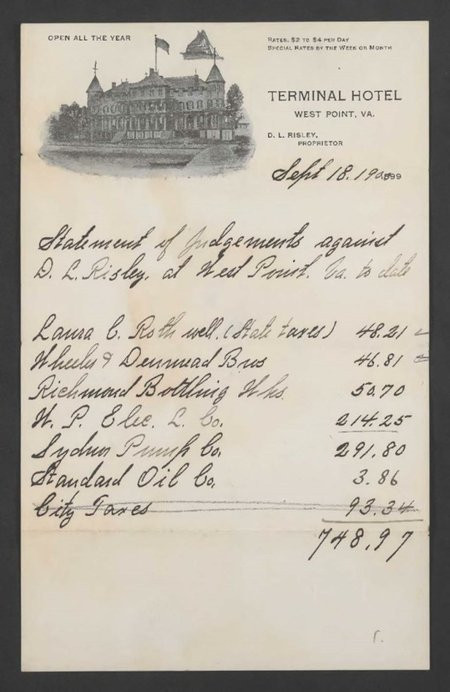 OPEN ALL THE YEAR
RATES, $2 TO $4 PER DAY
SPECIAL RATES BY THE WEEK OR MONTH
TERMINAL HOTEL
WEST POINT, VA.
D. L. RISLEY,
PROPRIETOR
Sept 18. 1900
Statement of judgements against
D. L. Risley, at West Point, Va. to date
Laura C. Roth well. (State taxes) 48.21
Wheeler & Denmead Bros 46.81
Richmond Bottling Wks. 50.70
W. P. Elec. L. Co. 214.25
Pump Co. 291.80
Standard Oil Co. 3.86
City Taxes 93.34
748.97